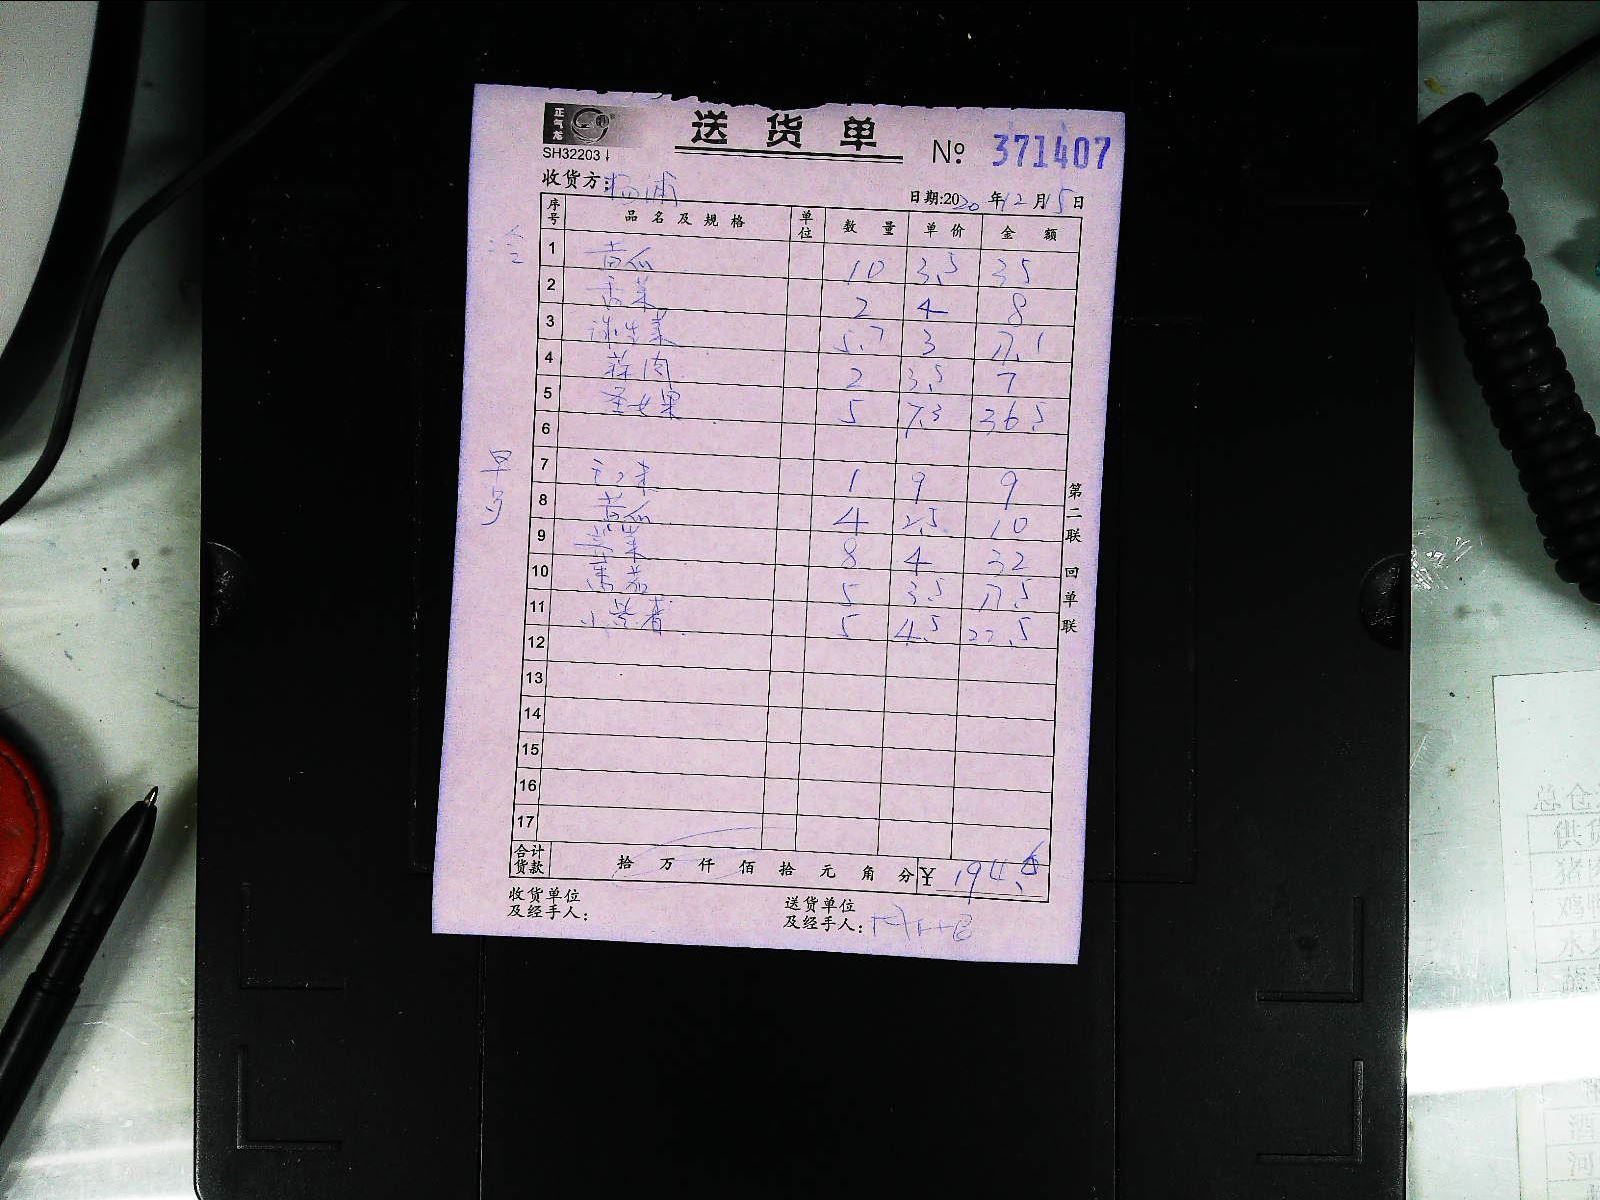 正气龙
送货单
SH32203
№ 371407
收货方: 杨浦
日期:2020年12月15日
序号 品名及规格 单位 数量 单价 金额
冷
1 黄瓜 10 3.5 35
2 香菜 2 4 8
3 球生菜 5.7 3 17.1
4 蒜肉 2 3.5 7
5 圣女果 5 7.3 36.5
6
早
7 1 9 9
8 黄瓜 4 2.5 10
9 8 4 32
10 番茄 5 3.5 17.5
11 5 4.5 22.5
12
13
14
15
16
17
第二联 回单联
合计货款 拾 万 仟 佰 拾 元 角 分 ¥ 194.6
收货单位及经手人:
送货单位及经手人:
总仓
供货
猪肉
水
酒
河